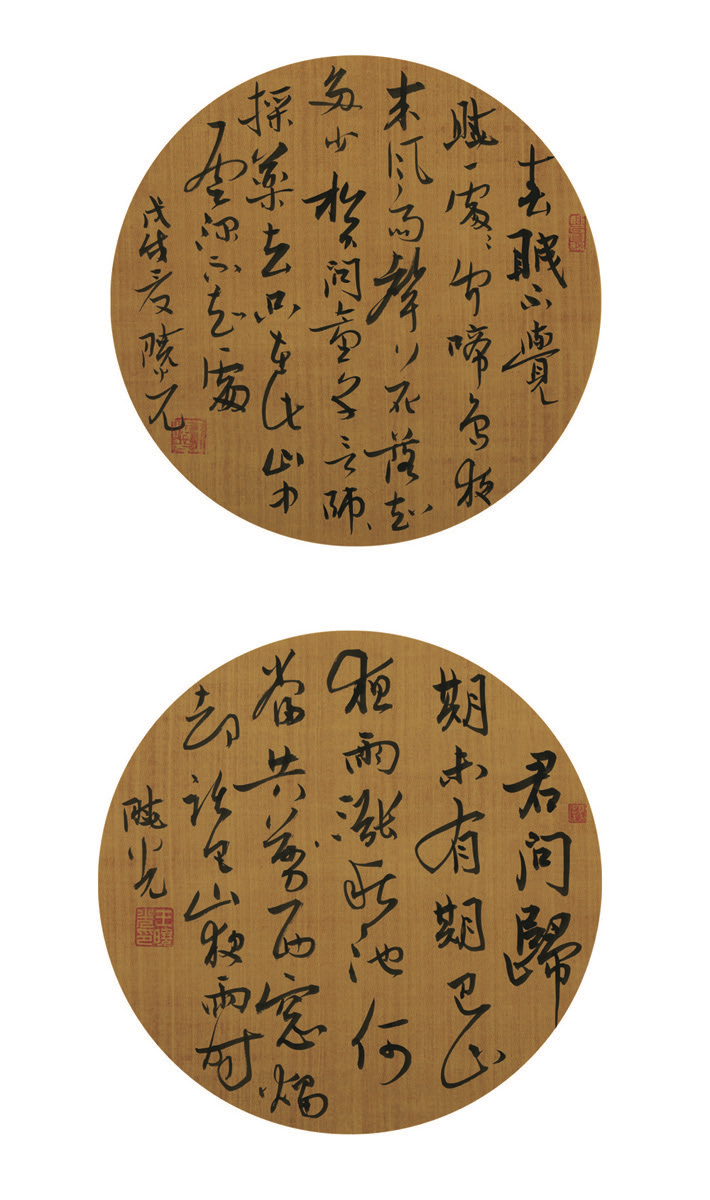 春眠不覺
曉處々聞啼鳥夜
来風雨聲花落知
多少松下問童子言師
採藥去只在此山中
雲深不知處
戊戌夏曉光
君問歸
期未有期巴山
夜雨漲秋池何
當共剪西窓燭
却話巴山夜雨時
曉光
王曉光印